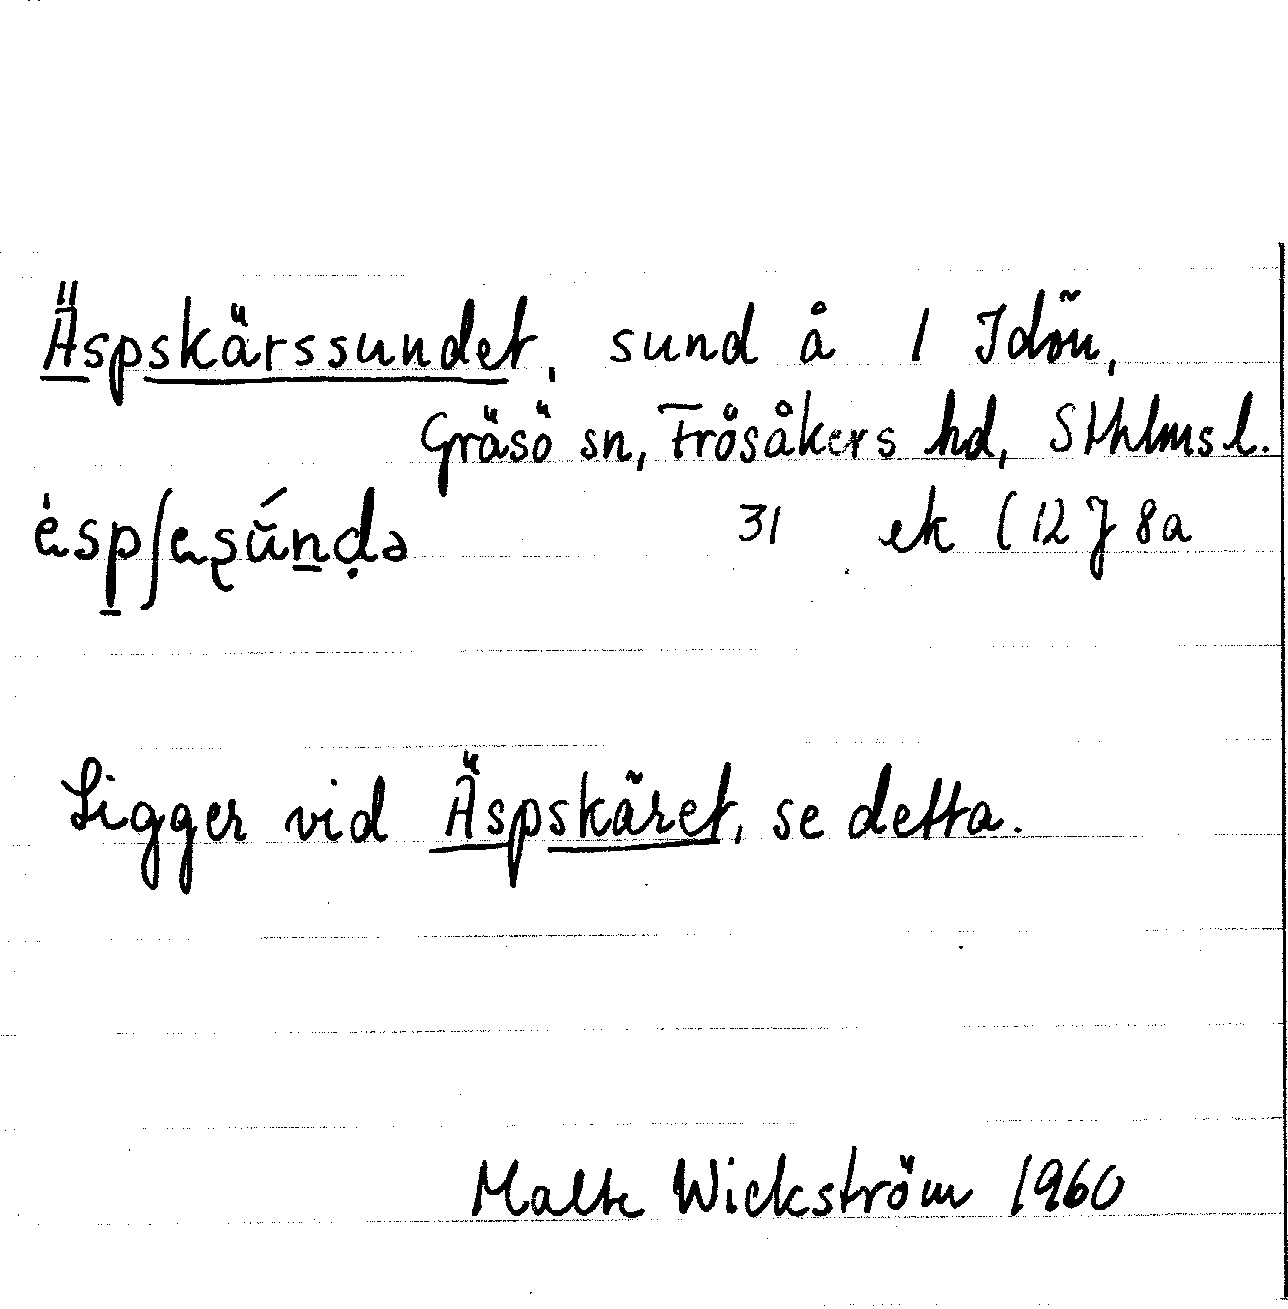 Äspskärssundet, sund å 1 Idön,
Gräsö sn, Frösåkers hd, Sthlms l.
31 ek (12 J 8a
Ligger vid Äspskäret, se detta.
Malte Wickström 1960